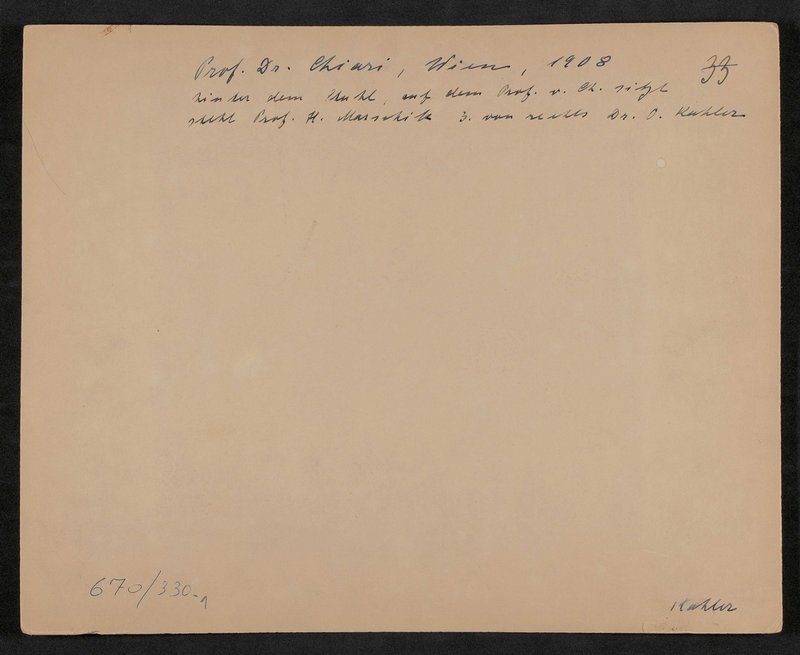 Prof. Dr. Chiari, Wien, 1908
33
hinter dem Stuhl, auf dem Prof. v. Ch. sitzt
steht Prof. H. Marschik 3. von rechts Dr. O. Kahler
670/330-1
Kahler